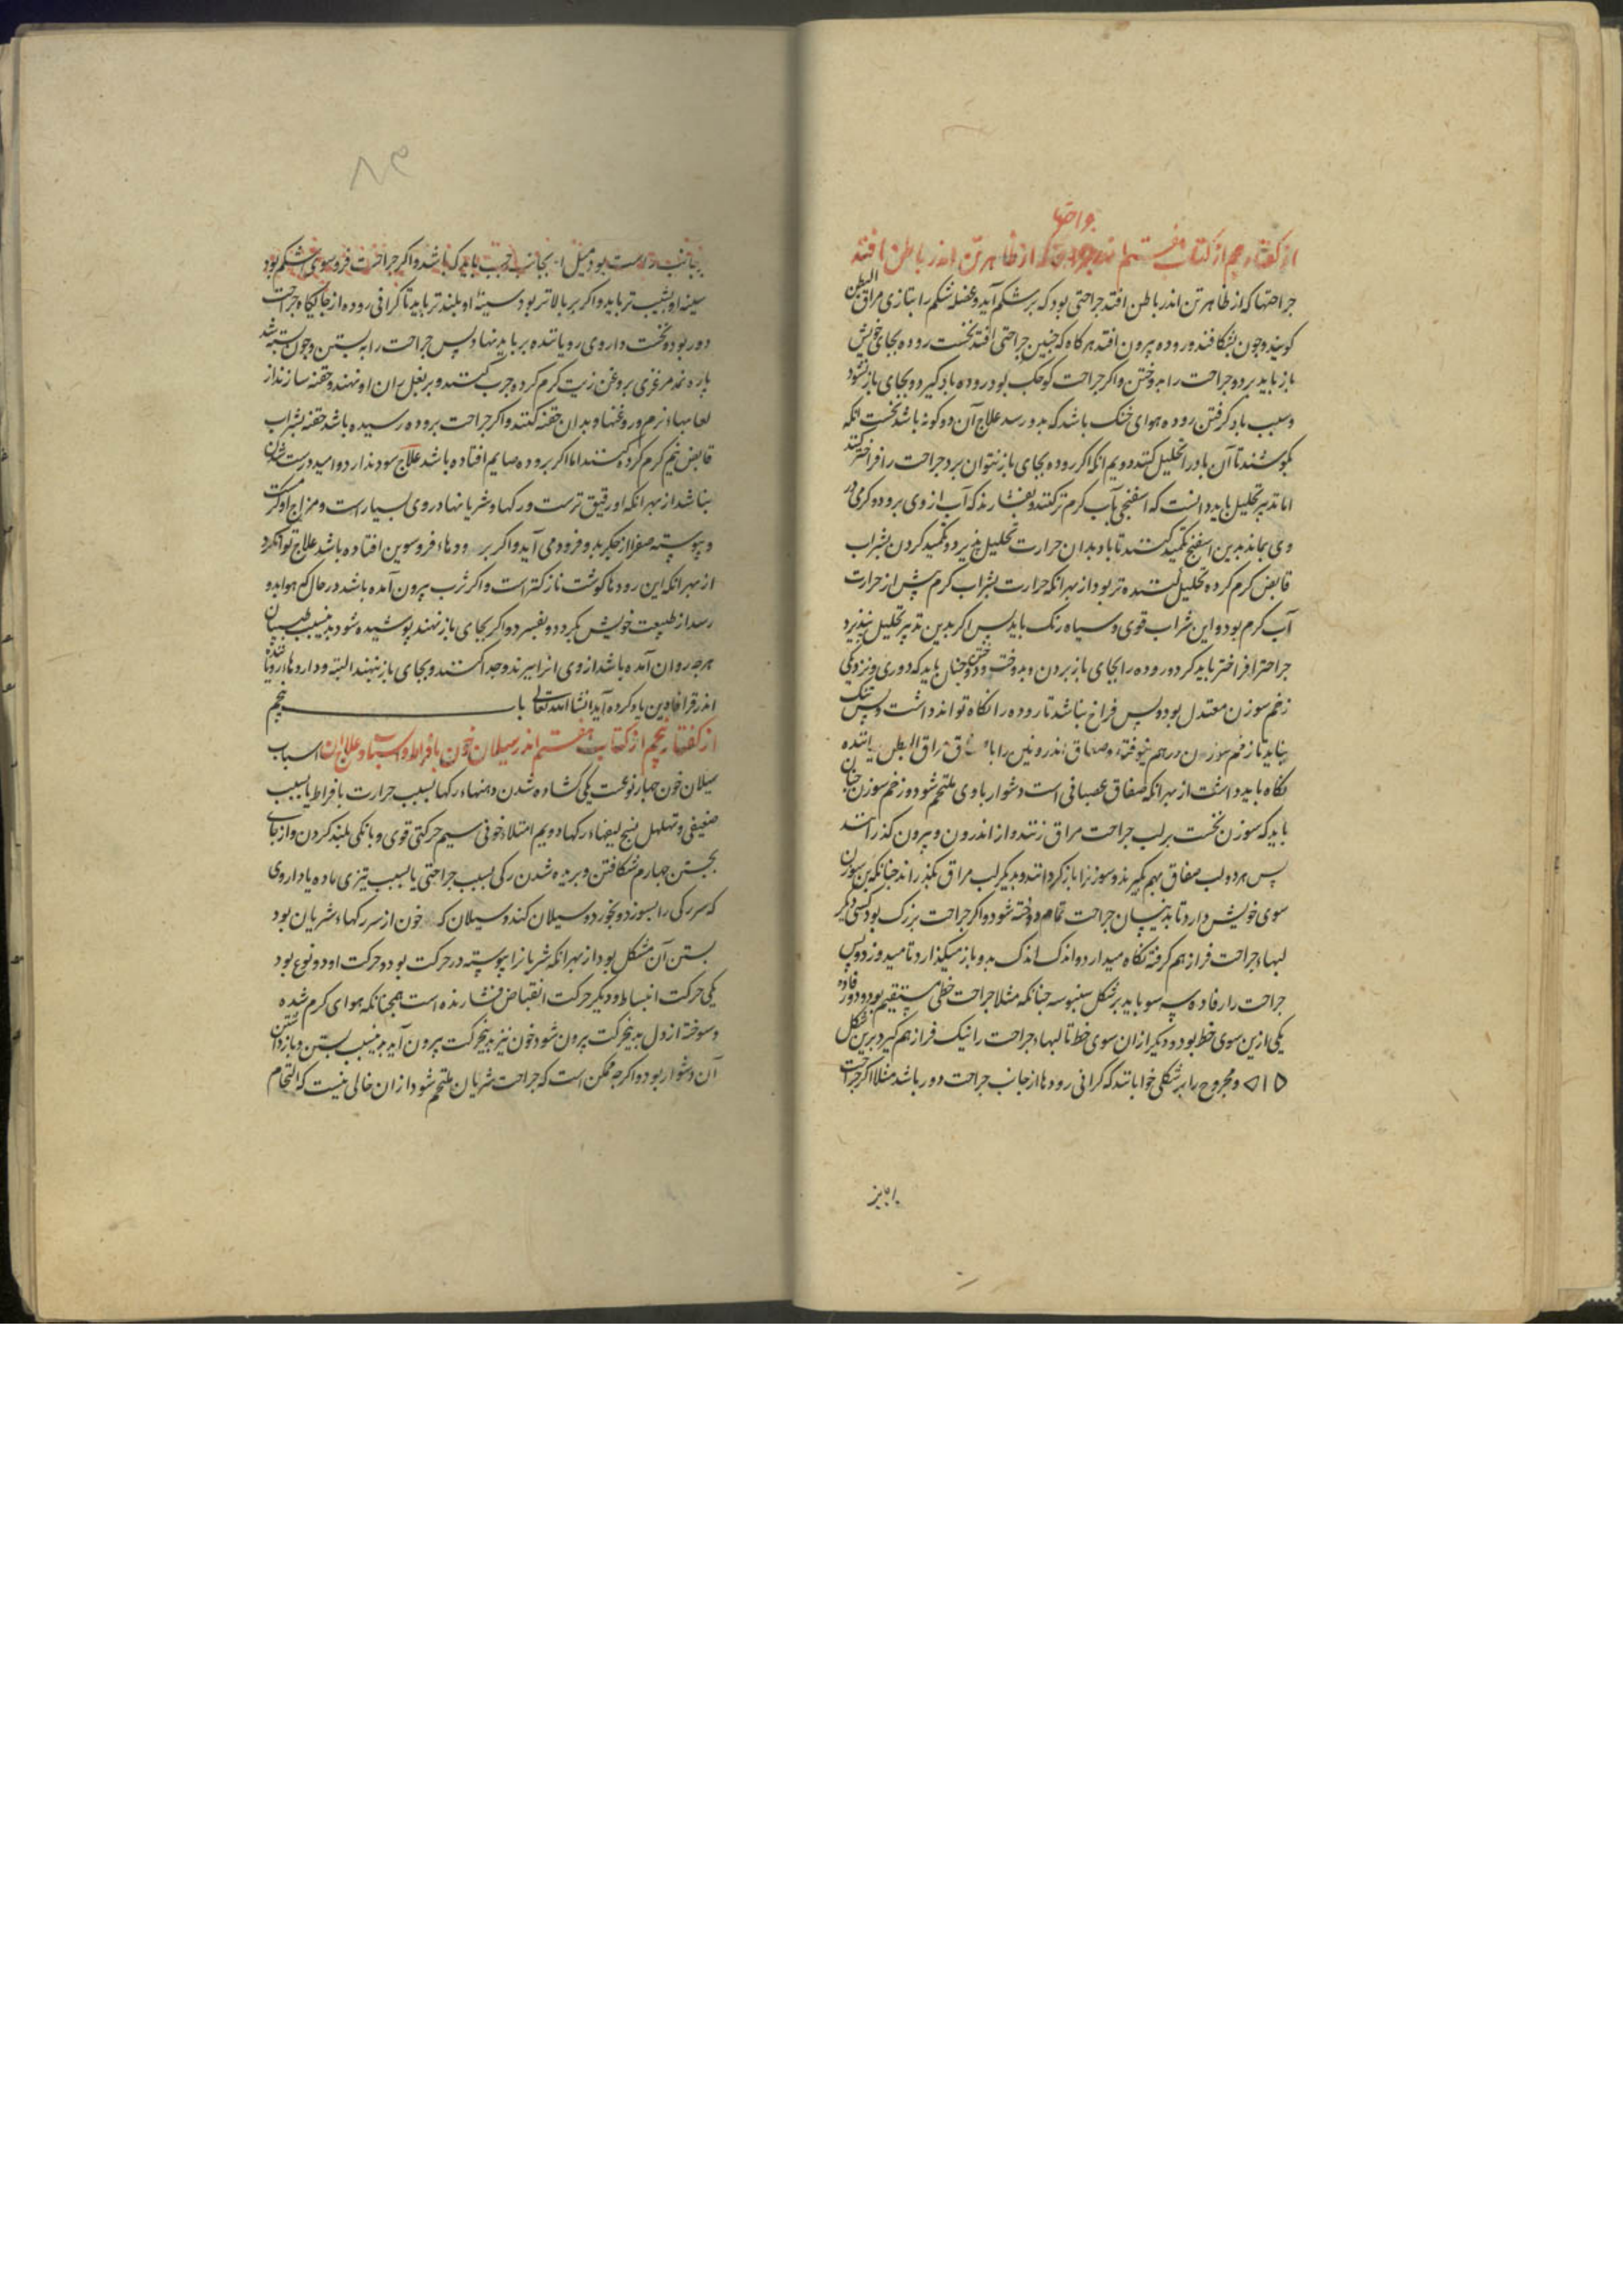 جراحتها
از گفتار پنجم از کتاب هفتم اندر جراحتها که از ظاهر تن اندر باطن افتد
جراحتها که از ظاهر تن اندر باطن افتد جراحتی بود که بر شکم آید و عضله شکم را بتازی مراق البطن
کویند و چون بشکافند و روده بیرون افتد هرکاه که چنین جراحتی افتد نخست روده بجای خویش
باز باید برد و جراحت را بدوختن و اکر جراحت کوچک بود روده باد کیرد و بجای باز نشود
و سبب باد کرفتن روده هوای خنک باشد که بدو رسد علاج آن دو کونه باشد نخست آنکه
بکوشند تا آن باد را تحلیل کنند دویم آنکه اکر روده بجای باز نتوان برد جراحت را فراختر کنند
اما تدبیر تحلیل باید دانست که اسفنجی بآب کرم تر کنند و بفشارند که آب از وی برود و کرمی در
وی بماند بدین اسفنج تکمید کنند تا باد بدان حرارت تحلیل پذیرد و تکمید کردن بشراب
قابض کرم کرده تحلیل کننده تر بود از بهر آنکه حرارت شراب کرم بیش از حرارت
آب کرم بود و این شراب قوی و سیاه رنک باید پس اکر بدین تدبیر تحلیل نپذیرد
جراحت را فراختر باید کرد و روده را بجای باز بردن و بدوخت و دوختن چنان باید که دوری و نزدیکی
زخم سوزن معتدل بود و بس فراخ نباشد تا روده را نکاه تواند داشت و بس تنک
نباید تا زخم سوزن درهم نیوفتد و صفاق اندرونین را با مراق البطن یافته
نکاه باید داشت از بهر آنکه صفاق عصبانی است دشوار با وی ملتحم شود و زخم سوزن چنان
باید که سوزن نخست بر لب جراحت مراق زنند و از اندرون و بیرون کذرانند
پس هر دو لب صفاق بهم بکیرند و سوزن را باز کردانند و بدیکر لب مراق بکذرانند چنانکه بن سوزن
سوی خویش دارد تا بدینسان جراحت تمام دوخته شود و اکر جراحت بزرک بود کسی دیکر
لبهاء جراحت فراز هم کرفته نکاه میدارد و اندک اندک بدو باز میکذارد تا میدوزد و پس
جراحت را رفاده سه سو باید بر شکل سنبوسه چنانکه مثلا جراحت خطی مستقیم بود و دو رفاده
یکی ازین سوی خط بود و دیکر از ان سوی خط تا لبهاء جراحت را نیک فراز هم کیرد برین شکل
و مجروح را بر شکلی خوابانند که کرانی رودها از جانب جراحت دور باشد مثلا اکر جراحت
بجانب راست بود میل او بجانب چپ باید که باشد و اکر جراحت فرو سوی شکم بود
سینه او بشیب تر باید و اکر بر بالاتر بود سینه او بلند تر باید تا کرانی روده از جایکاه جراحت
دور بود و نخست داروی رویاننده بر باید نهاد پس جراحت را به بستن و چون بسته شد
پاره نمد مرغزی بروغن زیت کرم کرده چرب کنند و بر بغل و بن ران او نهند و حقنه سازند از
لعابهاء نرم و روغنها و بدان حقنه کنند و اکر جراحت بروده رسیده باشد حقنه بشراب
قابض نیم کرم کرده کنند اما اکر بروده صایم افتاده باشد علاج سود ندارد و امید درست شدن
نباشد از بهر آنکه او رقیق ترست و رکها و شریانها در وی بسیار است و مزاج او کرمست
و پیوسته صفرا از جکر بدو فرود می آید و اکر بر رودهاء فروسوین افتاده باشد علاج توان کرد
از بهر آنکه این رودها کوشت ناز کتر است و اکر ثرب بیرون آمده باشد در حال که هوا بدو
رسد از طبیعت خویش بکردد و بفسرد و اکر بجای باز نهند پوشیده شود بدین سبب طبیبان
هرچه روان آمده باشد از وی آنرا ببرند و جدا کنند و بجای باز ننهند البته و داروها رویاننده
اندر قرابادین یاد کرده آید انشا الله تعالی باب پنجم
از کفتار پنجم از کتاب هفتم اندر سیلان خون بافراط و اسباب و علاج ان اسباب
سیلان خون چهار نوعست یکی کشاده شدن دهنهاء رکها بسبب حرارت بافراط یا بسبب
ضعیفی و تهلهل نسج لیفهاء رکها دویم امتلاء خونی سیم حرکتی قوی و بانکی بلند کردن و از جای
بجستن چهارم شکافتن و بریده شدن رکی بسبب جراحتی یا بسبب تیزی ماده یا داروی
که سر رکی را بسوزد و بخورد و سیلان کند و سیلان که خون از سر رکهاء شریان بود
بستن آن مشکل بود از بهر آنکه شریانرا پیوسته در حرکت بود و حرکت او دو نوع بود
یکی حرکت انبساط و دیکر حرکت انقباض فشارنده است همچنانکه هوای کرم شده
و سوخته از دل بدین حرکت بیرون شود خون نیز بدین حرکت بیرون آید بدین سبب بستن و باز داشتن
آن دشوار بود و اکرچه ممکن است که جراحت شریان ملتحم شود از ان خالی نیست که التحام